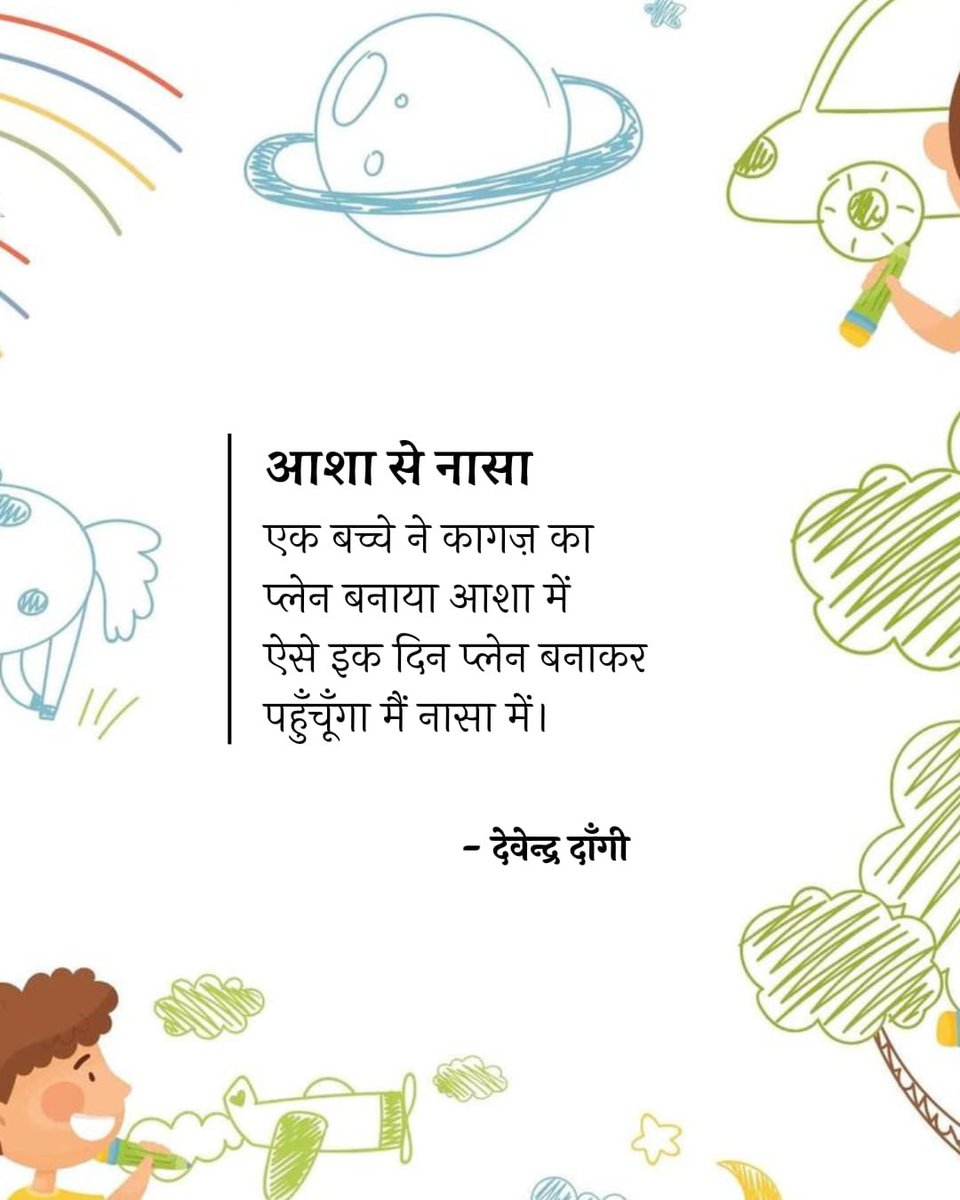 आशा से नासा
एक बच्चे ने कागज़ का
प्लेन बनाया आशा में
ऐसे इक दिन प्लेन बनाकर
पहुँचूँगा मैं नासा में।
- देवेन्द्र दाँगी